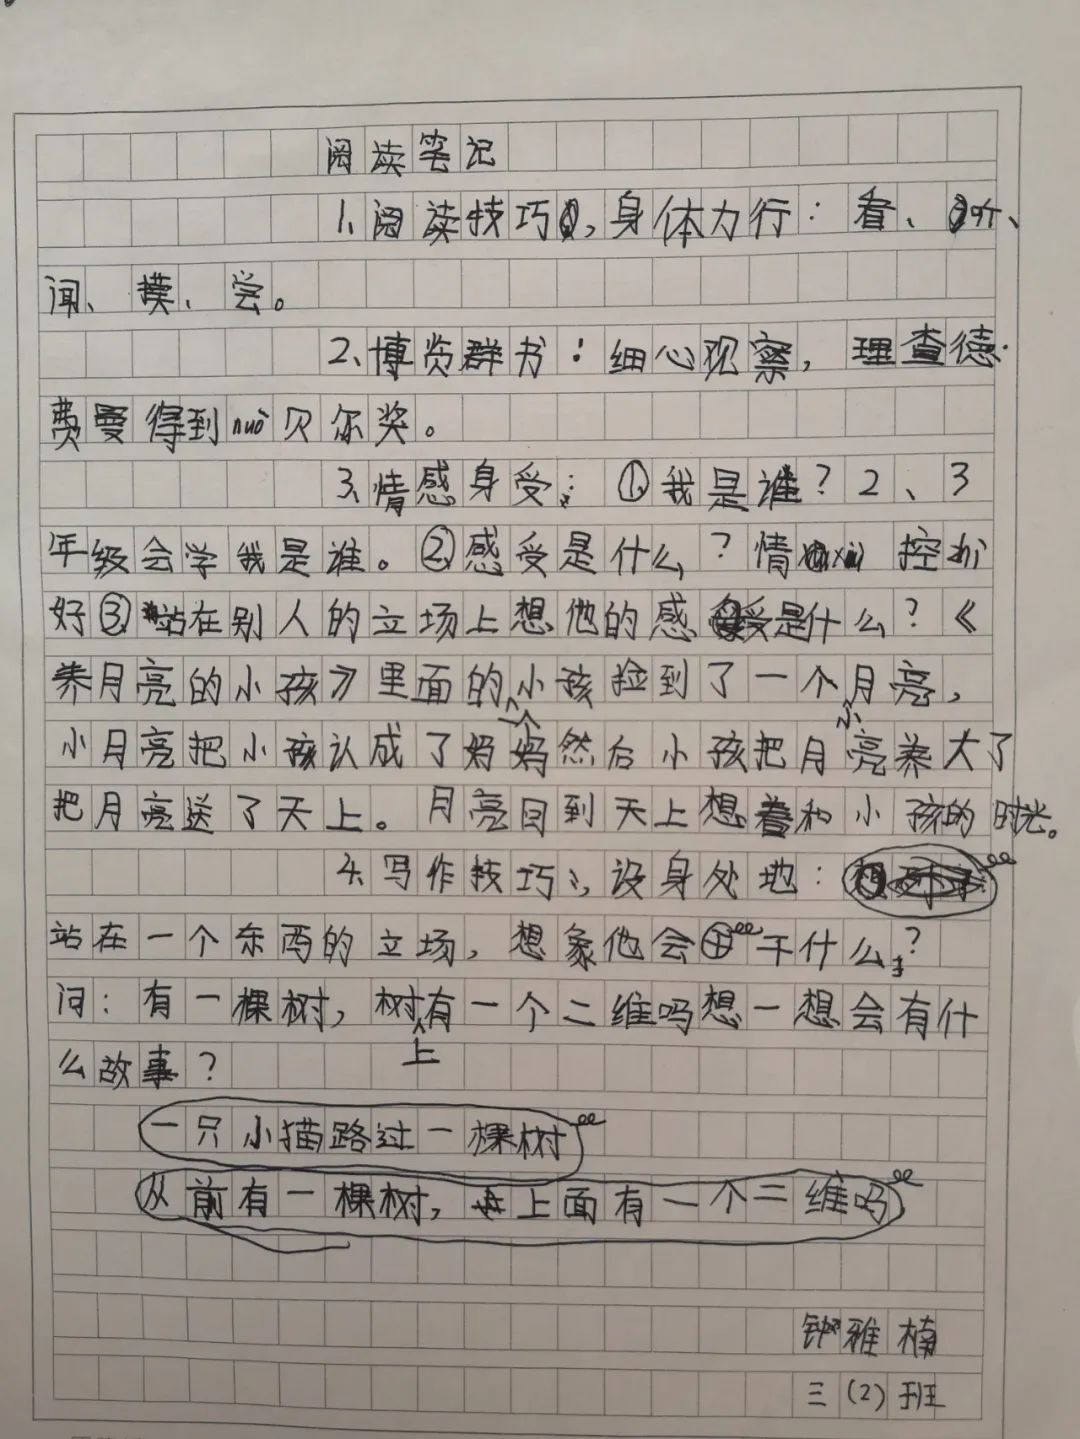 阅读笔记
1、阅读技巧,身体力行:看、听、
闻、摸、尝。
2、博览群书:细心观察,理查德·
费曼得到nuò贝尔奖。
3、情感身受:①我是谁?2、3
年级会学我是谁。②感受是什么?情 控制
好③站在别人的立场上想他的感受是什么?《
养月亮的小孩》里面的小孩捡到了一个月亮,
小月亮把小孩认成了妈妈然后小孩把月亮养大了
把月亮送了天上。月亮回到天上想着和小孩的时光。
4、写作技巧:,设身处地:
站在一个东西的立场,想象他会干什么?
问:有一棵树,树上有一个二维吗想一想会有什
么故事?
一只小猫路过一棵树
从前有一棵树,上面有一个二维吗
钟雅楠
三(2)班